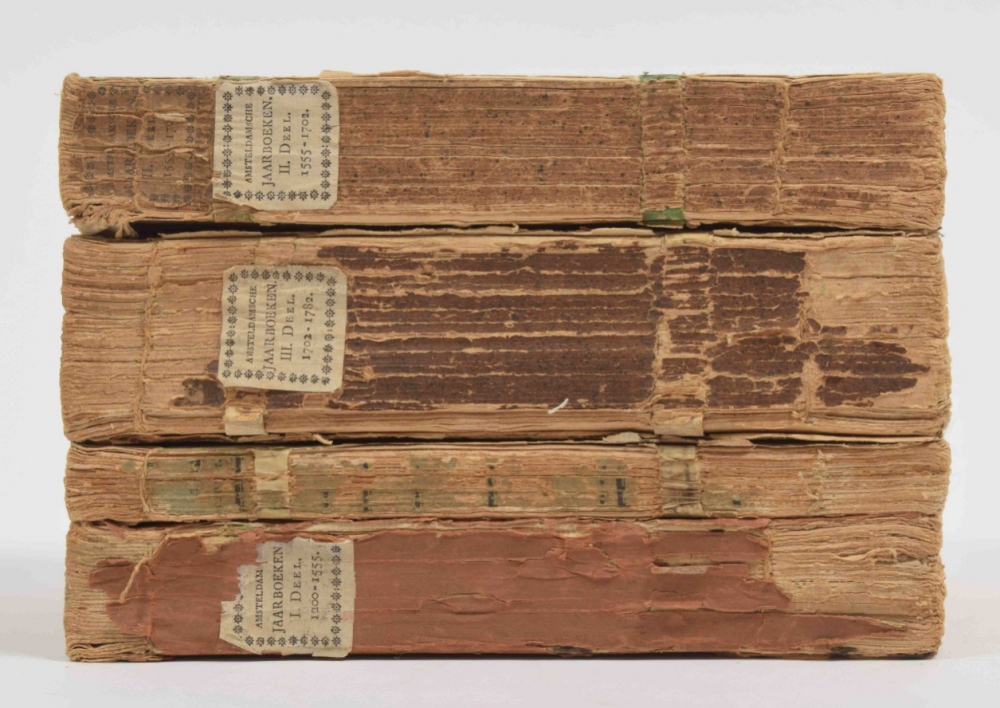 AMSTELDAMSCHE
JAARBOEKEN.
II. DEEL.
1555-1702.
AMSTELDAMSCHE
JAARBOEKEN.
III. DEEL.
1702-1782.
AMSTELDAM
JAARBOEKEN
I. DEEL.
1200-1555.